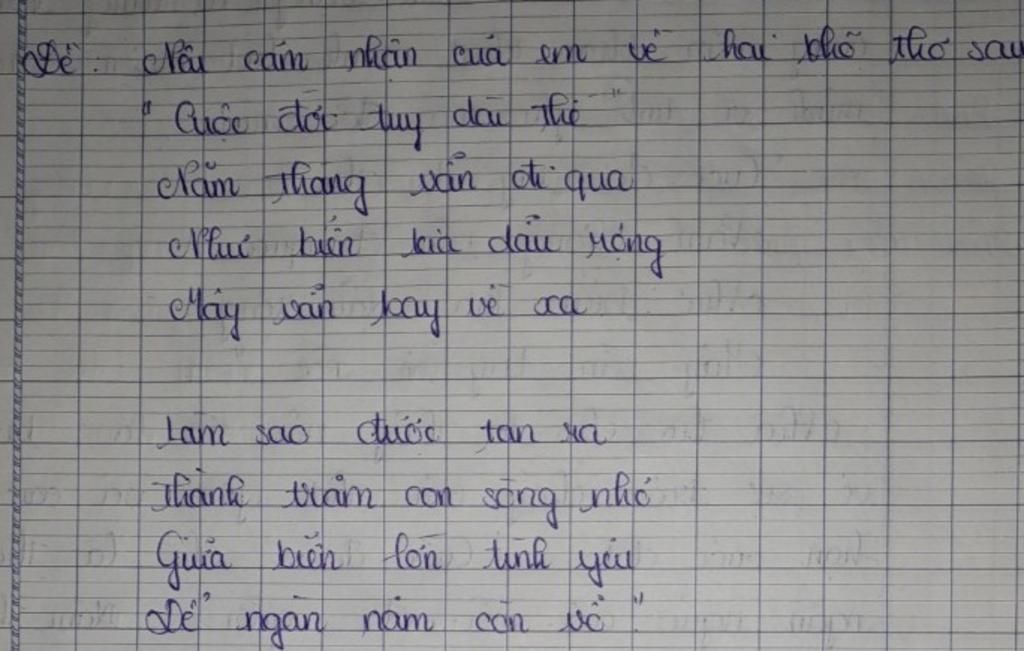 Đề: Nêu cảm nhận của em về hai khổ thơ sau
"Cuộc đời tuy dài thế"
Năm tháng vẫn đi qua
Như biển kia dẫu rộng
Mây vẫn bay về xa
Làm sao được tan ra
Thành trăm con sóng nhỏ
Giữa biển lớn tình yêu
Để ngàn năm còn vỗ"